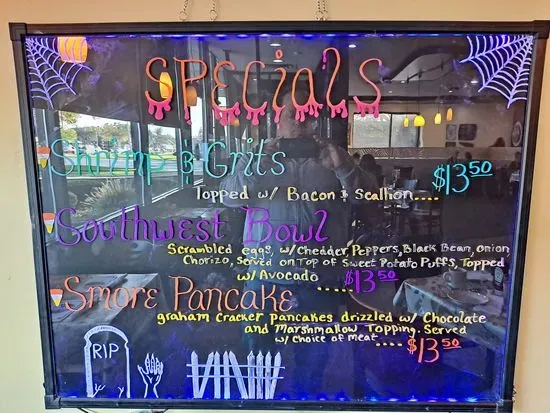 Specials
Shrimp & Grits
Topped w/ Bacon & Scallion.... $13.50
Southwest Bowl
Scrambled eggs, w/Chedder, Peppers, Black Bean, onion
Chorizo, Served on Top of Sweet Potato Puffs, Topped
w/Avocado ..... $13.50
Smore Pancake
graham Cracker pancakes drizzled w/ Chocolate
and Marshmallow Topping. Served
w/ choice of meat..... $13.50
RIP